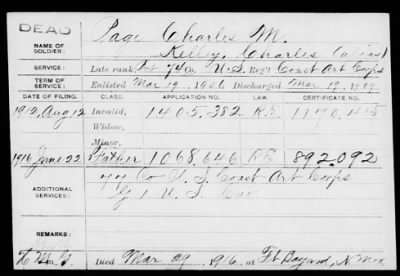 DEAD
Page Charles M.
NAME OF SOLDIER:
Kelley, Charles (alias)
SERVICE:
Late rank, Pvt 74 Co. U.S. Reg't Coast Art Corps
TERM OF SERVICE:
Enlisted Mar 19, 1906 Discharged Mar 18, 1909
DATE OF FILING. CLASS. APPLICATION NO. LAW. CERTIFICATE NO.
1912, Aug 12 Invalid, 1405,382 R.E.
Widow,
Minor,
1916 June 22 Father 1068,646 R.E. 892,092
ADDITIONAL SERVICES:
Co U.S. Coast Art Corps
U.S. Cav
REMARKS:
Died Mar 29, 1916, at Ft Bayard, N Mex